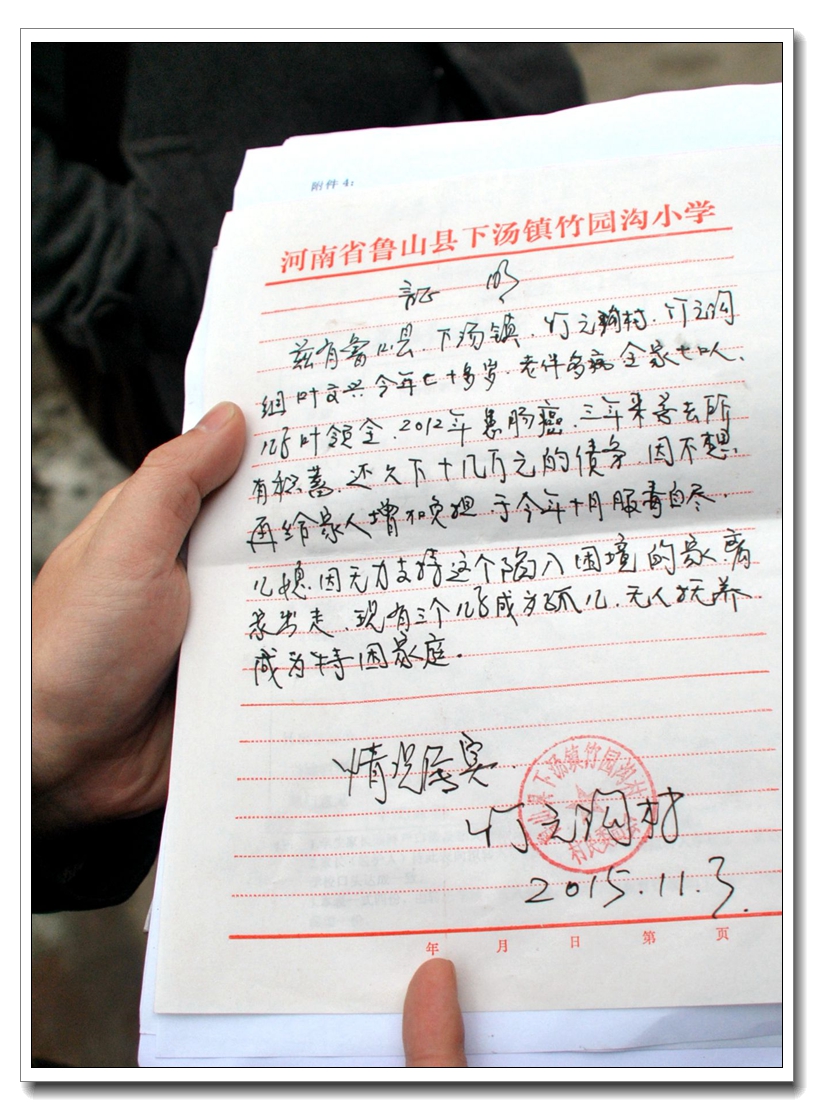 附件4：
河南省鲁山县下汤镇竹园沟小学
证 明
兹有鲁山县、下汤镇、竹元沟村、竹元沟
组叶文兴今年七十多岁、老伴多病全家七口人、
儿子叶领全、2012年患肠癌、三年来善去所
有积蓄、还欠下十几万元的债务、因不想
再给家人增加免担于今年十月服毒自尽.
儿媳因无力支持这个陷入困境的家离
家出走、现有三个儿子成为孤儿、无人抚养
成为特困家庭.
情况属实.
竹元沟村
2015.11.3.
鲁山县下汤镇竹园沟村
村民委员会
年 月 日 第 页